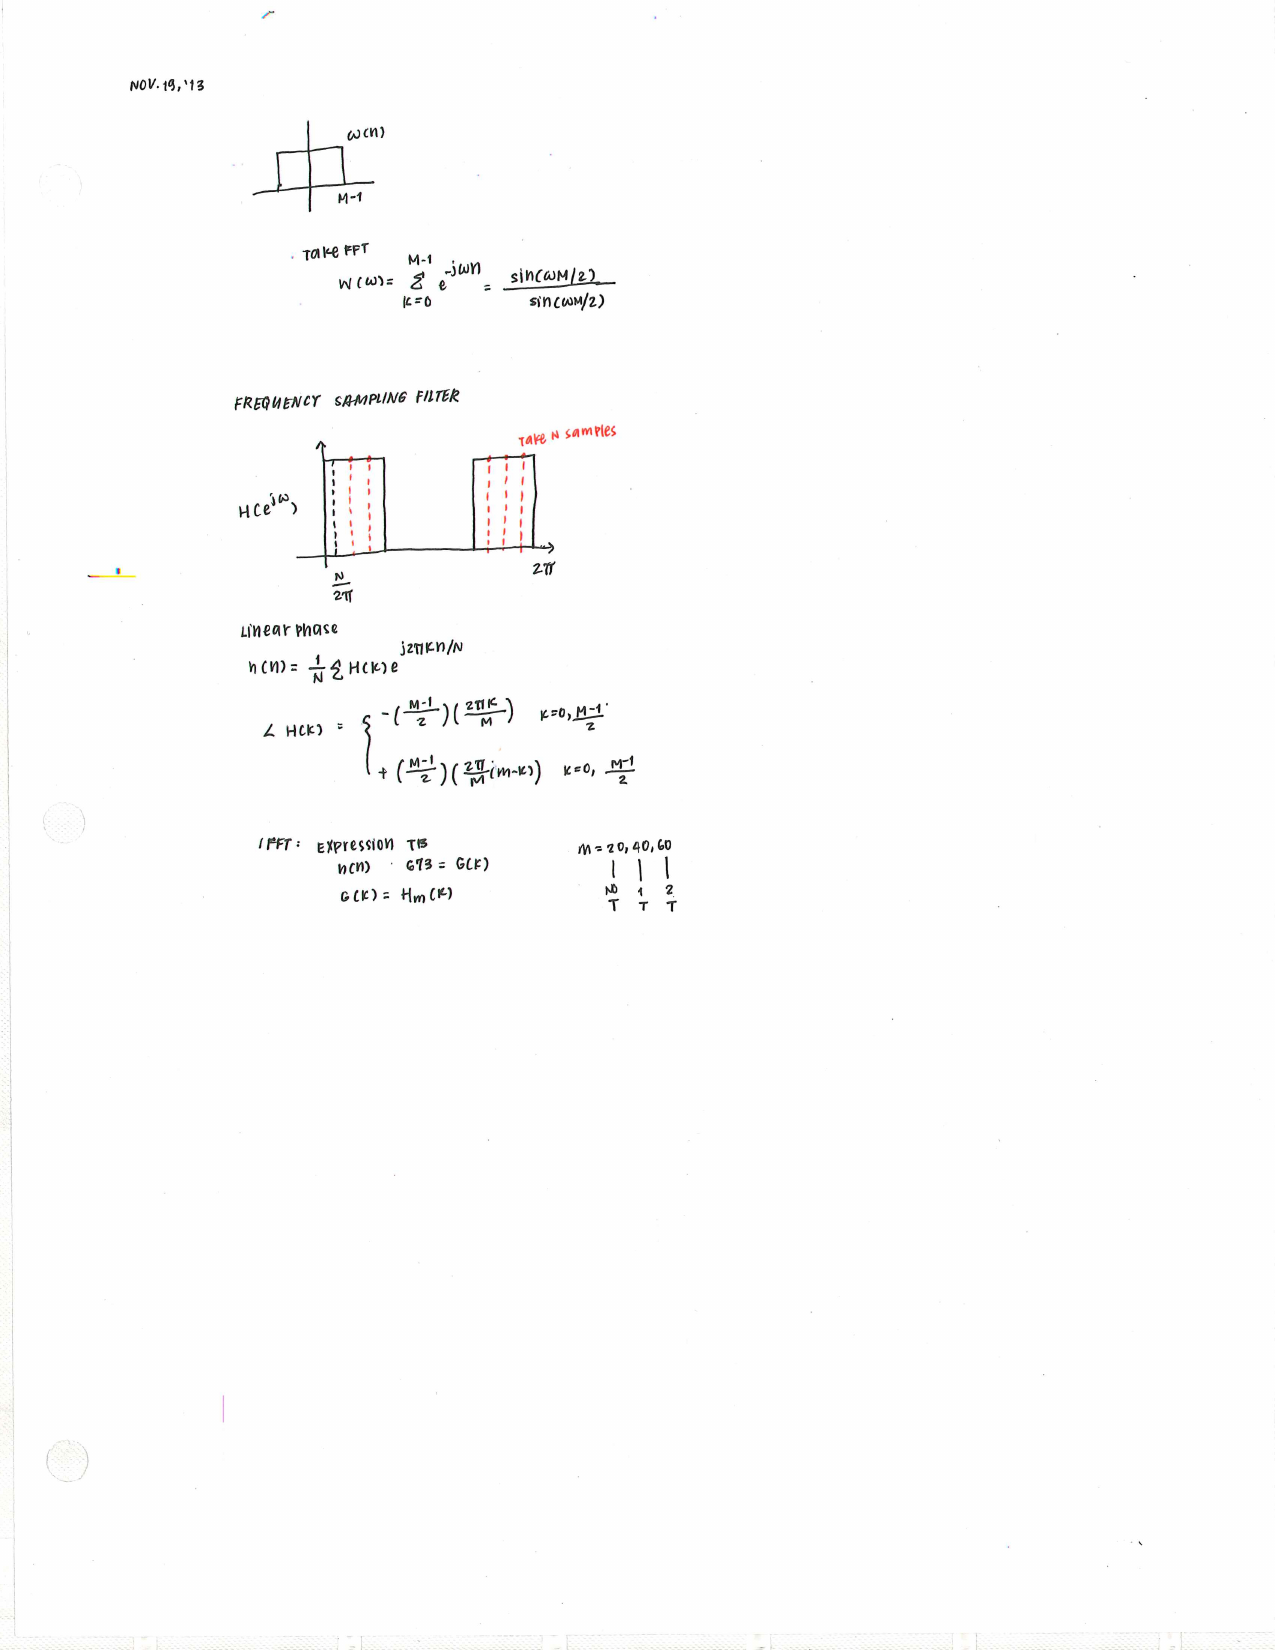 NOV. 19, '13
ω(n)
M-1
Take FFT
W(ω) = Σ_{K=0}^{M-1} e^{-jωn} = sin(ωM/2) / sin(ωM/2)
FREQUENCY SAMPLING FILTER
Take N samples
H(e^{jω})
N/2π
2π
Linear phase
h(n) = 1/N Σ H(K) e^{j2πKn/N}
∠ H(K) = { -(M-1/2)(2πK/M) K=0, M-1/2
+ (M-1/2)(2π/M (m-K)) K=0, M-1/2
IFFT: Expression TB
h(n) 673 = G(K)
G(K) = Hm(K)
M = 20, 40, 60
NO 1 2
T T T